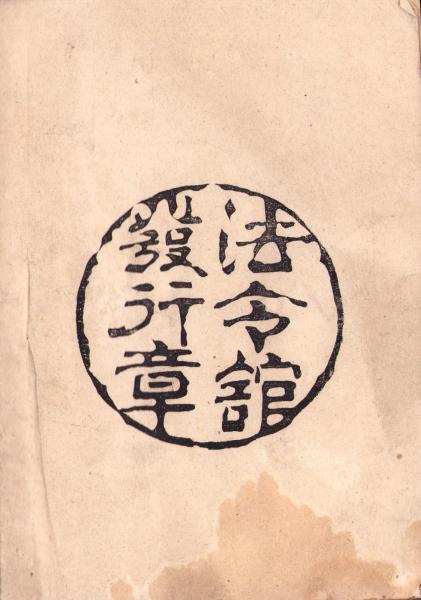 法令館
發行章